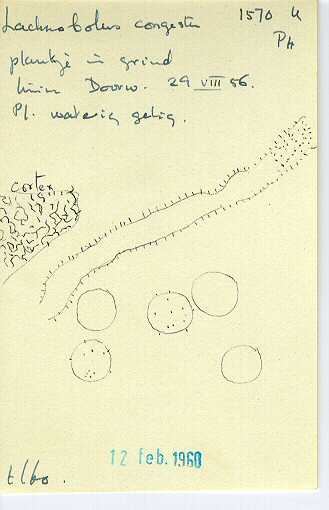 Lachnobolus congestus 1570 U
PH
plankje in grind
Doorw. 29 VIII 56.
Pl. waterig gelig.
cortex
12 Feb. 1960